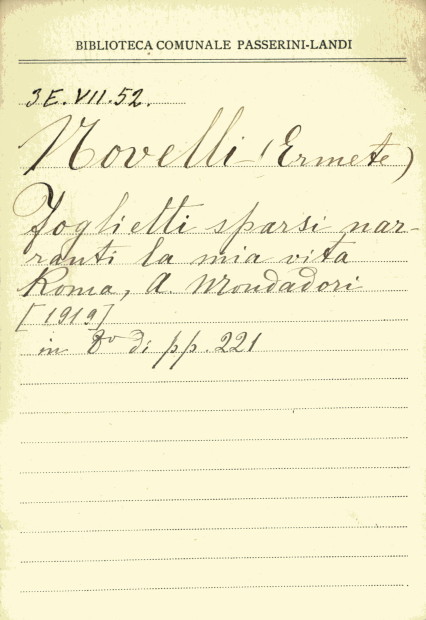 BIBLIOTECA COMUNALE PASSERINI-LANDI
3E.VII.52.
Novelli (Ermete)
Foglietti sparsi nar-
ranti la mia vita
Roma, A. Mondadori
[1919]
in 8º di pp. 221